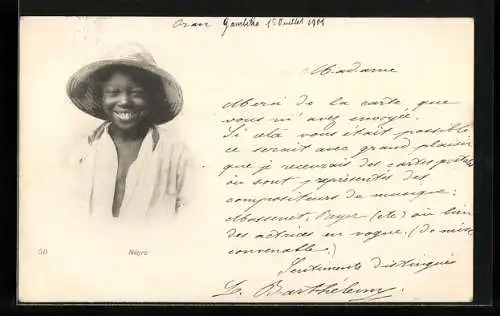 Oran Gambetta 1er Juillet 1901
Madame
Merci de la carte, que
vous m'avez envoyée.
Si celà vous était possible
ce serait avec grand plaisir
que je recevrais des cartes postales
où sont représentés des
compositeurs de musique:
Massenet, Reyer (etc) où bien
des actrices en vogue. (de mise
convenable.)
Sentiments distingués
L. Barthélemy
50 Nègre